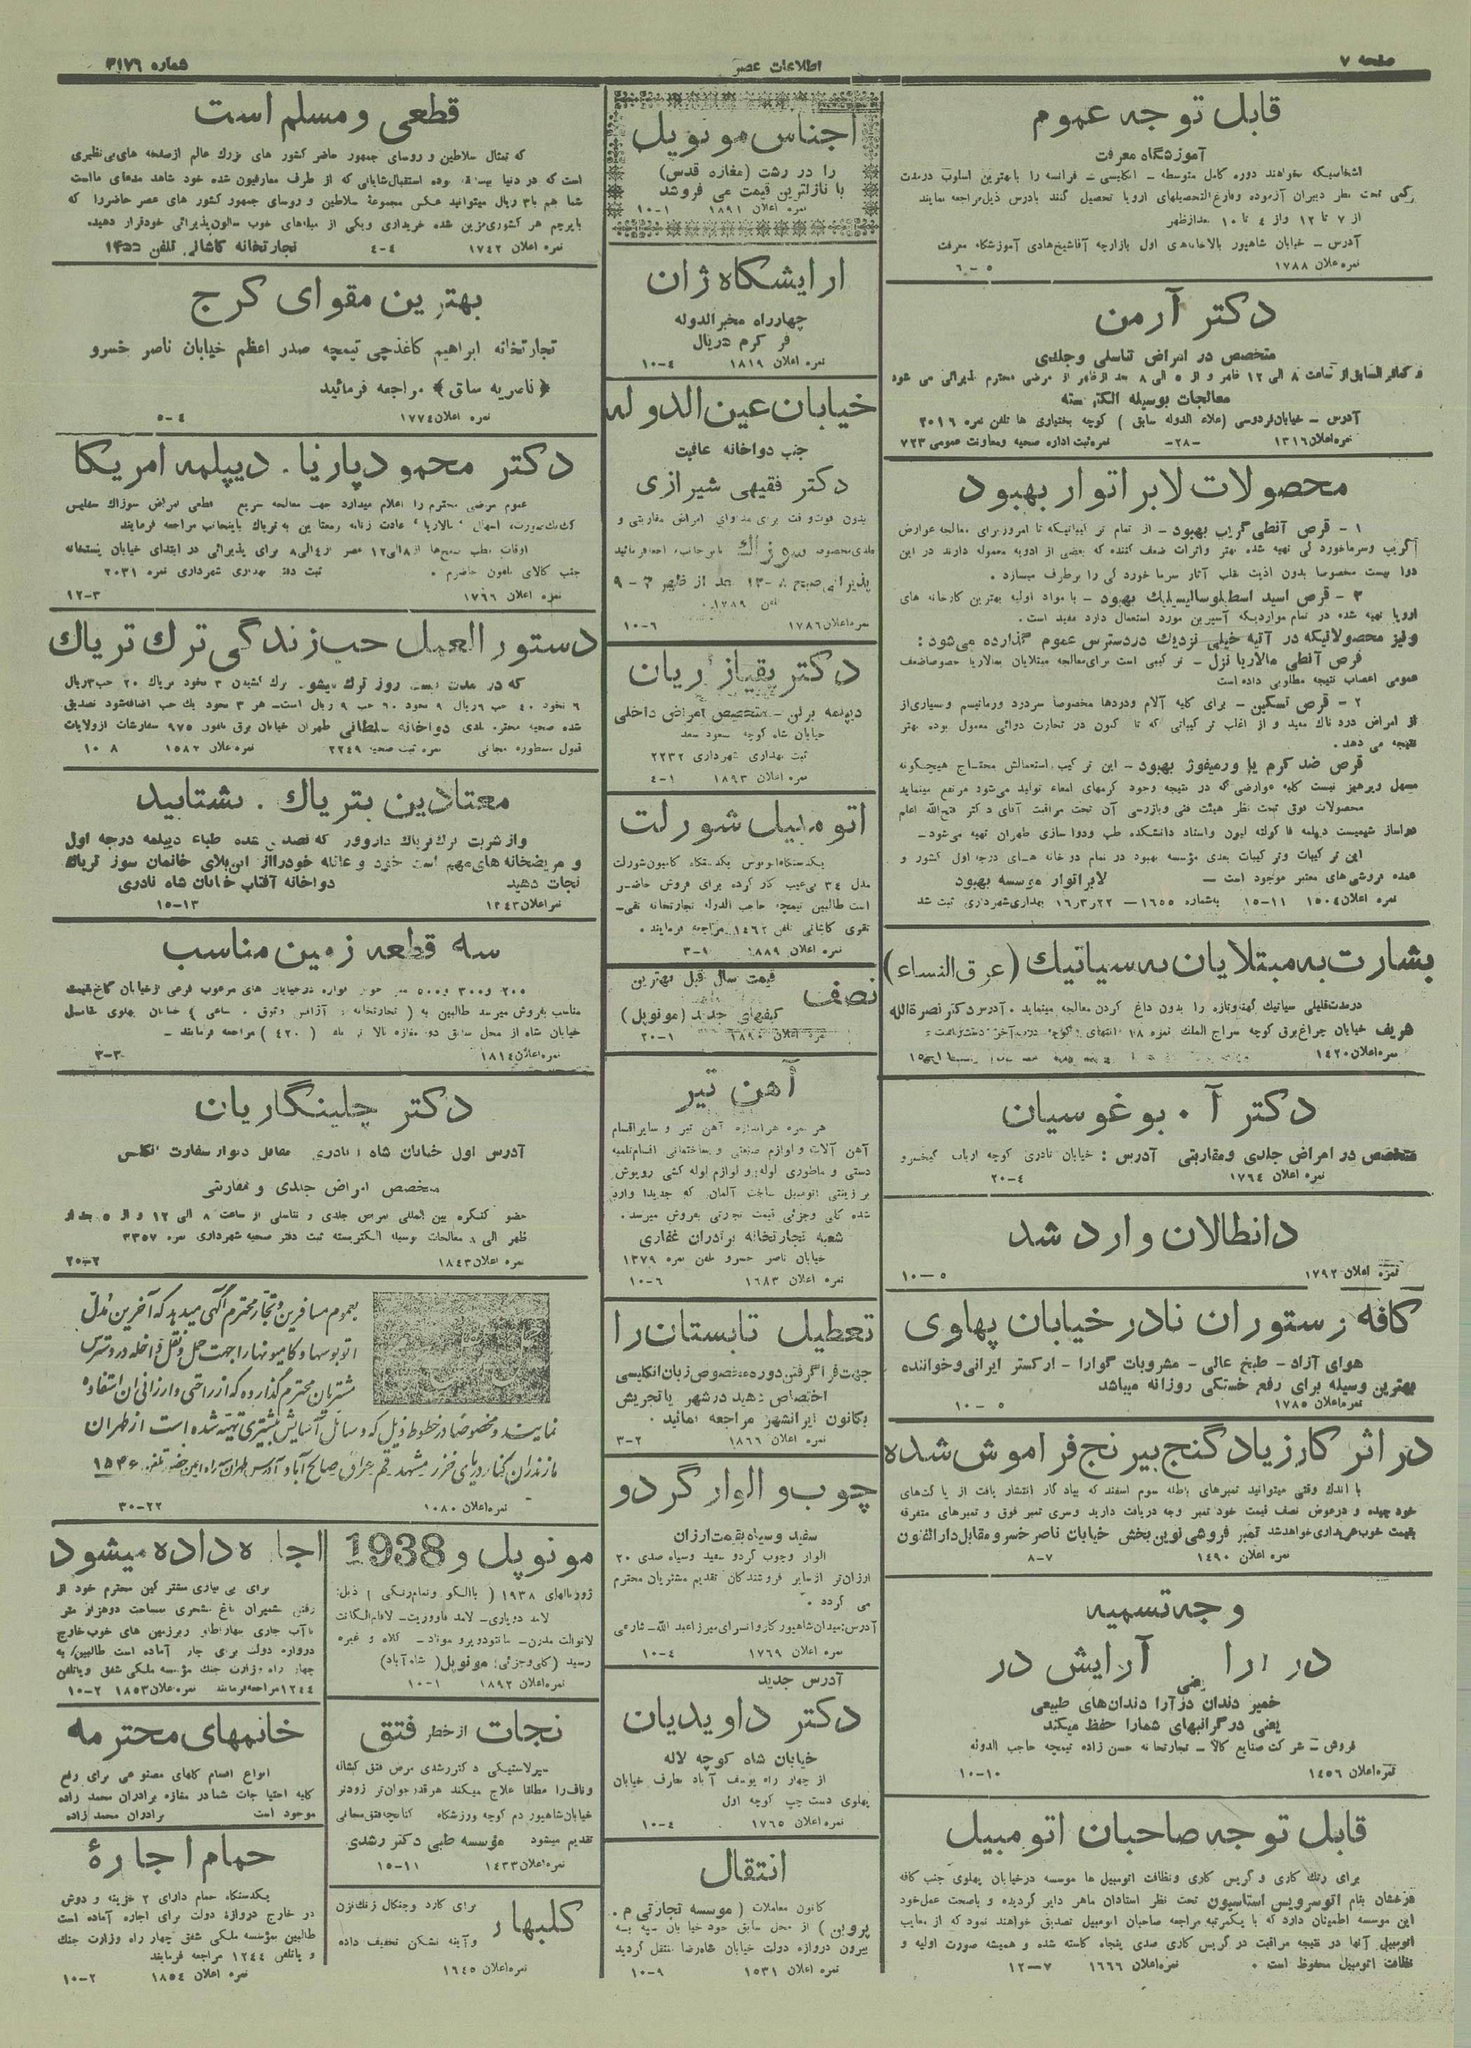 صفحه ۷
اطلاعات عصر
شماره ۳۱۷۶
قابل توجه عموم
آموزشگاه معرفت
اشخاصیکه بخواهند دوره کامل متوسطه - انگلیسی - فرانسه را بابهترین اسلوب درمدت
کمی تحت نظر دبیران آزموده وفارغ‌التحصیلهای اروپا تحصیل کنند بادرس ذیل مراجعه نمایند
از ۷ تا ۱۲ واز ٤ تا ۱۰ بعدازظهر
آدرس - خیابان شاهپور بالاخانه‌های اول بازارچه آقاشیخ‌هادی آموزشگاه معرفت
نمره اعلان ۱۷۸۸ ۵-۶
دکتر آرمن
متخصص در امراض تناسلی وجلدی
از ساعت ۸ الی ۱۲ ظهر و از ۵ الی ۸ بعد ازظهر از مرضی محترم پذیرائی می شود
معالجات بوسیله الکتریسته
آدرس - خیابان فردوسی (علاء الدوله سابق) کوچه بختیاری ها تلفن نمره ۲۰۱۶
نمره‌اعلان ۱۳۱٦ -۲۸- نمره‌ثبت اداره صحیه ومعاونت عمومی ۷۲۳
محصولات لابراتوار بهبود
۱ - قرص آنطی گریپ بهبود - از تمام ترکیباتیکه تا امروز برای معالجه عوارض
گریپ وسرماخوردگی تهیه شده بهتر واثرات ضعف کننده که بعضی از ادویه معموله دارند در این
دوا نیست مخصوصا بدون اذیت قلب آثار سرما خوردگی را برطرف میسازد .
۲ - قرص اسید استیلوسالیسیلیک بهبود - با مواد اولیه بهترین کارخانه های
اروپا تهیه شده در تمام مواردیکه آسپرین مورد استعمال دارد مفید است .
ونیز محصولاتیکه در آتیه خیلی نزدیک دردسترس عموم گذارده می‌شود :
قرص آنطی مالاریا نزل - ترکیبی است برای‌معالجه مبتلایان بمالاریا خصوصاضعف
عمومی اعصاب نتیجه مطلوبی داده است
۲ - قرص تسکین - برای کلیه آلام ودردها مخصوصا سردرد ورماتیسم وبسیاری‌از
امراض درد ناک مفید و از اغلب ترکیباتی که تا کنون در تجارت دوائی معمول بوده بهتر
نتیجه می دهد .
قرص ضد کرم یا ورمیفوژ بهبود - این ترکیب استعمالش محتاج هیچگونه
مسهل وپرهیز نیست کلیه عوارضی که در نتیجه وجود کرمهای امعاء تولید می‌شود مرتفع مینماید
محصولات فوق تحت نظر هیئت فنی وبازرسی آن تحت مراقبت آقای دکتر فتح‌الله اعلم
دواساز شیمیست دیپلمه فاکولته لیون واستاد دانشکده طب ودوا سازی طهران تهیه می‌شود -
این ترکیبات وترکیبات بعدی مؤسسه بهبود در تمام دوخانه های درجه اول کشور و
عمده فروشی‌های معتبر موجود است - لابراتوار موسسه بهبود
نمره اعلان ۱۵۰٤ ۱۱-۱۵ به‌شماره ۱۶۵۵ - ۱۶/۳/۲۲ بهداری‌شهرداری ثبت شد
بشارت به مبتلایان به سیاتیک (عرق النساء)
درمدت‌قلیلی سیاتیک کهنه‌وتازه را بدون داغ کردن معالجه مینماید . آدرس دکتر نصرةالله
شریف خیابان چراغ‌برق کوچه سراج الملک نمره ۱۸
نمره‌اعلان ۱٤۲۰
دکتر آ . بوغوسیان
متخصص در امراض جلدی ومقاربتی آدرس : خیابان نادری کوچه ارباب کیخسرو
نمره اعلان ۱۷٦٤ ٤-۲۰
دانطالان وارد شد
نمره اعلان ۱۷۹۲ ۵-۱۰
کافه رستوران نادر خیابان پهلوی
هوای آزاد - طبخ عالی - مشروبات گوارا - ارکستر ایرانی وخواننده
بهترین وسیله برای رفع خستگی روزانه میباشد
نمره‌اعلان ۱۷۸۵ ۵-۱۰
در اثر کار زیاد گنج بیرنج فراموش شده
با اندک وقتی میتوانید تمبرهای باطله سوم اسفند که بیاد گار انتشار یافت از پاکت‌های
خود چیده و درعوض نصف قیمت خود تمبر وجه دریافت دارید وسری تمبر فوق و تمبرهای متفرقه
بقیمت خوب خریداری‌خواهدشد تمبر فروشی نوین بخش خیابان ناصر خسرو مقابل دارالفنون
نمره اعلان ۱٤۹۰ ۷-۸
وجه تسمیه
در ارا یعنی آرایش در
خمیر دندان درآرا دندان‌های طبیعی
یعنی درگرانبهای شمارا حفظ میکند
فروش - شرکت صنایع کالا - تجارتخانه حسن زاده تیمچه حاجب الدوله
نمره‌اعلان ۱٤۵٦ ۱۰-۱۰
قابل توجه صاحبان اتومبیل
برای رنگ کاری و گریس کاری ونظافت اتومبیل ها موسسه درخیابان پهلوی جنب کافه
بنام اتوسرویس استاسیون تحت نظر استادان ماهر دایر گردیده و باصحت عمل‌خود
این موسسه اطمینان دارد که با یکمرتبه مراجعه صاحبان اتومبیل تصدیق خواهند نمود که از معایب
اتومبیل آنها در نتیجه مراقبت در گریس کاری صدی پنجاه کاسته شده و همیشه صورت اولیه و
نظافت اتومبیل محفوظ است . نمره‌اعلان ۱٦٦٦ ۷-۱۲
اجناس مونوپل
را در رشت (مغازه قدس)
با نازلترین قیمت می فروشد
نمره اعلان ۱۸۹۱ ۱-۱۰
ارایشگاه ژان
چهارراه مخبرالدوله
فر کرم ریال
نمره اعلان ۱۸۱۹ ٤-۱۰
خیابان عین الدوله
جنب دواخانه عافیت
دکتر فقیهی شیرازی
بدون فوت‌وقت برای مداوای امراض مقاربتی و
جلدی‌مخصوصا سوزاک مراجعه فرمائید
نمره‌اعلان ۱۷۸٦ ٦-۱۰
دکتر بقیازاریان
دیپلمه برلن - متخصص امراض داخلی
خیابان شاه کوچه مسعود سعد
ثبت بهداری شهرداری ۲۲۳۲
نمره اعلان ۱۸۹۳ ۱-٤
اتومبیل شورلت
یکدستگاه‌اتوبوس یکدستگاه کامیون‌شورلت
مدل ۳٤ بی‌عیب کار کرده برای فروش حاضر
است طالبین تیمچه حاجب الدوله تجارتخانه تقی-
نقوی کاشانی تلفن ۱٤٦۲ مراجعه فرمایند .
نمره اعلان ۱۸۸۹ ۱-۳
نصف قیمت سال قبل بهترین
کیفهای جدید (مونوپل)
نمره اعلان ۱۸۹۰ ۱-۲۰
آهن تیر
هر نمره هراندازه آهن تیر و سایراقسام
آهن آلات و لوازم صنعتی و ساختمانی اقسام‌تلمبه
دستی و ماطوری لوله و لوازم لوله کشی روپوش
برزینتی اتومبیل ساخت آلمان که جدیدا وارد
شده کلی وجزئی قیمت تجارتی بفروش میرسد .
شعبه تجارتخانه برادران غفاری
خیابان ناصر خسرو تلفن نمره ۱۳۷۹
نمره اعلان ۱٦۸۳ ٦-۱۰
تعطیل تابستان را
جهت‌فراگرفتن‌دوره‌مخصوص‌زبان‌انگلیسی
اختصاص دهید درشهر یاتجریش
بکانون ایرانشهر مراجعه نمائید .
نمره اعلان ۱۸٦٦ ۲-۳
چوب والوار گردو
سفید وسیاه بقیمت ارزان
الوار وچوب گردو سفید وسیاه صدی ۲۰
ارزان‌تر ازسایر فروشندگان تقدیم مشتریان محترم
می گردد .
آدرس:میدان‌شاهپور کاروانسرای‌میرزاعبدالله-شارعی
نمره اعلان ۱۷٦۹ ٤-۱۰
آدرس جدید
دکتر داویدیان
خیابان شاه کوچه لاله
از چهار راه یوسف آباد معارف خیابان
پهلوی دست چپ کوچه اول
نمره اعلان ۱۷٦۵ ٤-۱۰
انتقال
کانون معاملات ( موسسه تجارتی م .
پروین) از محل سابق خود خیابان سپه به
بیرون دروازه دولت خیابان شاهرضا منتقل گردید
نمره اعلان ۱۵۳۱ ۹-۱۰
قطعی ومسلم است
که تمثال سلاطین و روسای جمهور حاضر کشور های بزرگ عالم ازصفحه های‌بی‌نظیری
است که در دنیا بیسابقه بوده استقبال‌شایانی که از طرف معارفیون شده خود شاهد مدعای مااست
شما هم با۳ ریال میتوانید عکس مجموعهٔ سلاطین و روسای جمهور کشور های عصر حاضررا که
باپرچم هر کشوری‌مزین شده خریداری ویکی از مبلهای خوب سالون‌پذیرائی خودقرار دهید.
نمره اعلان ۱۷٤۲ ٤-٤ تجارتخانه کاشانی تلفن ۱۴۵۵
بهترین مقوای کرج
تجارتخانه ابراهیم کاغذچی تیمچه صدر اعظم خیابان ناصر خسرو
(ناصریه سابق) مراجعه فرمائید
نمره اعلان۱۷۷٤ ٤-۵
دکتر محمود پارنا . دیپلمه امریکا
عموم مرضی محترم را اعلام میدارد جهت معالجه سریع قطعی امراض سوزاک سفلیس
اسهال مالاریا عادت زنانه ومعتادین به تریاک باینجانب مراجعه فرمایند
اوقات مطب صبح‌ها از۸الی۱۲ عصر از٤الی۸ برای پذیرائی در ابتدای خیابان پستخانه
جنب کالای میهن حاضرم . ثبت دفتر بهداری شهرداری نمره ۲۰۳۱
نمره اعلان ۱۷٦٦ ۳-۱۲
دستور العمل حب زندگی ترک تریاک
که در مدت بیست روز ترک میشود. ترک کشیدن ۳ نخود تریاک ۲۰ حب۳ریال
٦ نخود ٤۰ حب ٦ریال ۹ نخود ٦۰ حب ۹ ریال است- هر ۳ نخود یک حب اضافه‌شود تصدیق
شده صحیه محترم بلدی دواخانه سلطانی طهران خیابان برق مامور ۹۷۵ سفارشات ازولایات
قبول مسطوره مجانی نمره ثبت صحیه ۲۲٤۹ نمره اعلان ۱۵۸۲ ۸-۱۰
معتادین بتریاک . بشتابید
واز شربت ترک‌تریاک داروور که تصدیق شده اطباء دیپلمه درجه اول
و مریضخانه های مهم است خود و عائله خودرااز این‌بلای خانمان سوز تریاک
نجات دهید دواخانه آفتاب خیابان شاه نادری
نمره‌اعلان۱۲٤۳ ۱۳-۱۵
سه قطعه زمین مناسب
مناسب بفروش میرسد طالبین به ( تجارتخانه
نمره‌اعلان۱۸۱٤ ۳-۳
دکتر چلینگاریان
آدرس اول خیابان شاه (نادری) مقابل دیوار سفارت انگلیس
متخصص امراض جلدی و مقاربتی
عضو کنگره بین المللی مرض جلدی و تناسلی از ساعت ۸ الی ۱۲ و از ۵ بعد از
ظهر الی ۸ معالجات بوسیله الکتریسته ثبت دفتر صحیه شهرداری نمره ۳۳۵۷
نمره اعلان۱۸٤۳ ۲-۲۵
بعموم مسافرین وتجار محترم آگهی میدهد که آخرین مدل
اتوبوسها وکامیونهارا جهت حمل ونقل داخله در دسترس
مشتریان محترم گذارده که از راحتی وارزانی آن استفاده
نمایند ومخصوصا در خطوط ذیل که وسائل آسایش بیشتری تهیه شده است . از طهران
مازندران کنار دریای خزر مشهد قم عراق صالح آباد آدرس طهران سه راه امین حضور تلفن ۱۵۴۶
نمره‌اعلان ۱۰۸۰ ۲۲-۳۰
مونوپل و 1938
ژورنالهای ۱۹۳۸ ( باالگو وتمام‌رنگی ) ذیل:
رسید (کلی‌وجزئی) مونوپل( شاه‌آباد)
نمره‌اعلان ۱۸۹۲ ۱-۱۰
اجاره داده میشود
رفتن شمیران باغ شجری مساحت دوهزار متر
باآب جاری چهاراطاق زیرزمین های خوب خارج
دروازه دولت برای اجاره آماده است طالبین به
چهار راه وزارت جنگ مؤسسه ملکی شفق ویاتلفن
۱۲٤٤مراجعه‌فرمایند نمره‌علان ۱۸۵۳ ۲-۱۰
نجات از خطر فتق
سپرلاستیکی دکتررشدی مرض فتق کشاله
وناف‌را مطلقا علاج میکند هرقدرجوان‌تر زودتر
خیابان‌شاهپور دم کوچه ورزشگاه کتابچه‌فتق‌مجانی
تقدیم میشود مؤسسه طبی دکتر رشدی
نمره‌اعلان۱٤۳۳ ۱۱-۱۵
خانمهای محترمه
انواع اقسام گلهای مصنوعی برای رفع
کلیه احتیاجات شمادر مغازه برادران محمد زاده
موجود است برادران محمد زاده
گلبهار برای کارد وچنگال زنگ‌نزن
وآینه نشکن تخفیف داده
نمره‌اعلان ۱٦٤۵
حمام اجارهٔ
یکدستگاه حمام دارای ۲ خزینه و دوش
در خارج دروازهٔ دولت برای اجاره آماده است
طالبین بمؤسسه ملکی شفق چهار راه وزارت جنگ
و یاتلفن ۱۲٤٤ مراجعه فرمایند
نمره اعلان ۱۸۵٤ ۲-۱۰